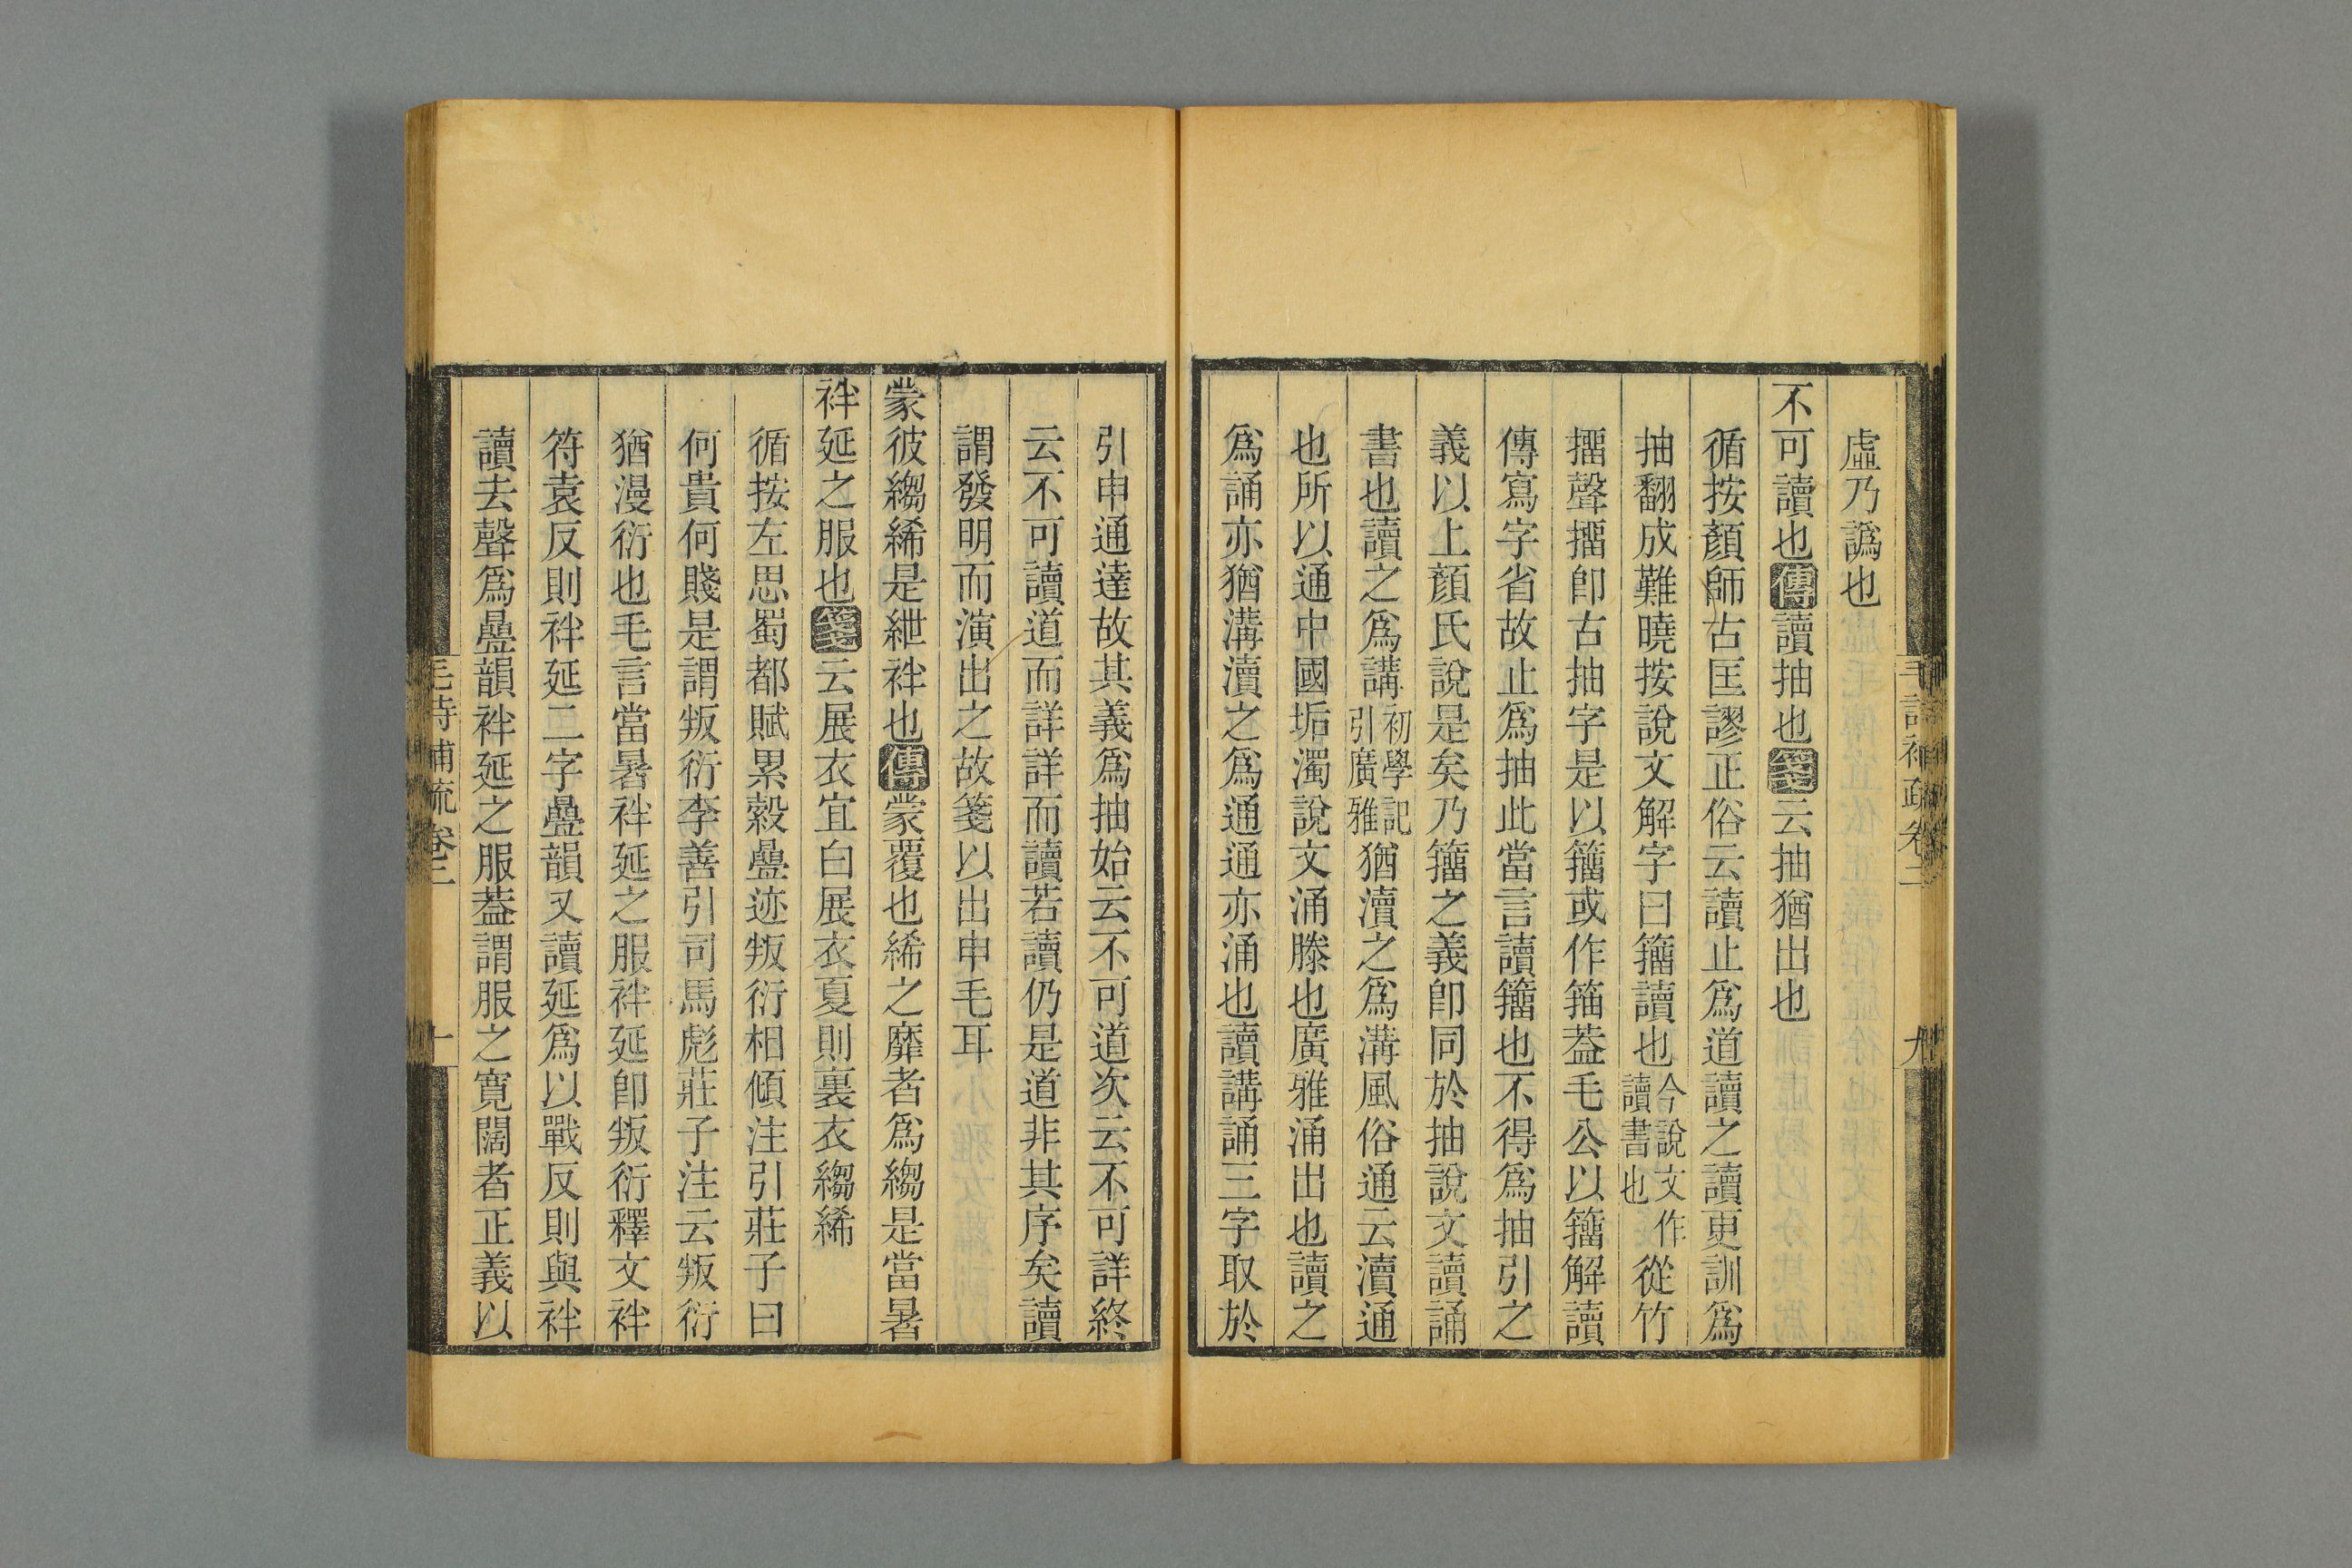 虛乃譌也
不可讀也傳讀抽也箋云抽猶出也
循按顏師古匡謬正俗云讀止爲道讀之讀更訓爲
抽翻成難曉按說文解字曰籀讀也今說文作讀書也從竹
𢭏聲𢭏卽古抽字是以籀或作䈕蓋毛公以籀解讀
傳寫字省故止爲抽此當言讀籀也不得爲抽引之
義以上顏氏說是矣乃籀之義卽同於抽說文讀誦
書也讀之爲講初學記引廣雅猶瀆之爲溝風俗通云瀆通
也所以通中國垢濁說文涌滕也廣雅涌出也讀之
爲誦亦猶溝瀆之爲通通亦涌也讀講誦三字取於
引申通達故其義爲抽始云不可道次云不可詳終
云不可讀道而詳詳而讀若讀仍是道非其序矣讀
謂發明而演出之故箋以出申毛耳
蒙彼縐絺是紲袢也傳蒙覆也絺之靡者爲縐是當暑
袢延之服也箋云展衣宜白展衣夏則裏衣縐絺
循按左思蜀都賦累轂疊迹叛衍相傾注引莊子曰
何貴何賤是謂叛衍李善引司馬彪莊子注云叛衍
猶漫衍也毛言當暑袢延之服袢延卽叛衍釋文袢
符袁反則袢延二字疊韻又讀延爲以戰反則與袢
讀去聲爲疊韻袢延之服蓋謂服之寬闊者正義以
毛詩補疏卷二
九
毛詩補疏卷二
十